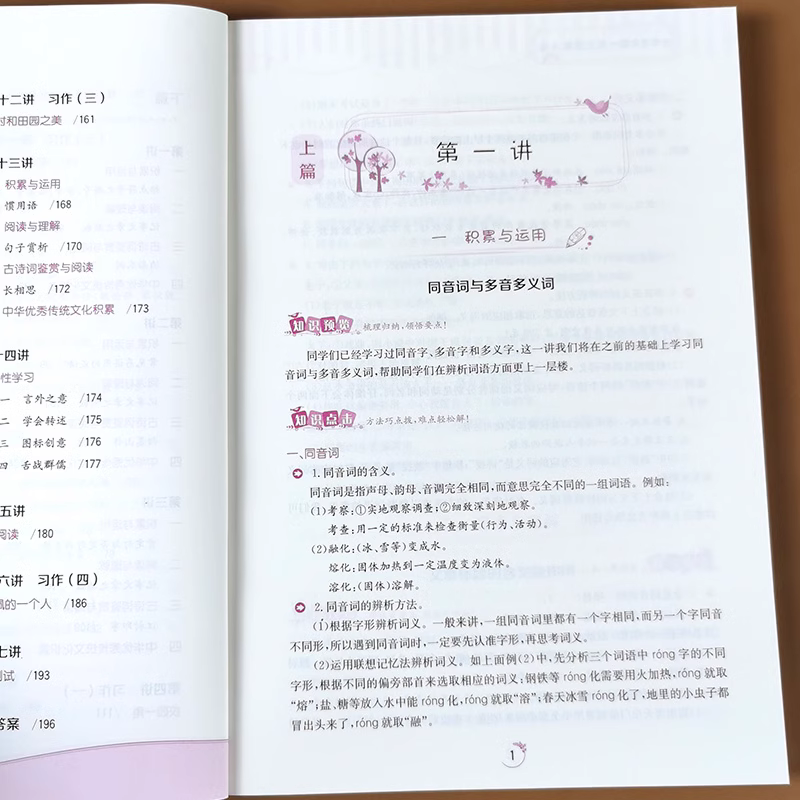 十二讲 习作(三)
村和田园之美 /161
十三讲
积累与运用
惯用语 /168
阅读与理解
句子赏析 /170
古诗词鉴赏与阅读
长相思 /172
中华优秀传统文化积累 /173
十四讲
性学习
一 言外之意 /174
二 学会转述 /175
三 图标创意 /176
四 舌战群儒 /177
五讲
阅读 /180
六讲 习作(四)
的一个人 /186
七讲
测试 /193
答案 /196
上篇
第一讲
一 积累与运用
同音词与多音多义词
知识预览 梳理归纳,领悟要点!
同学们已经学习过同音字、多音字和多义字,这一讲我们将在之前的基础上学习同
音词与多音多义词,帮助同学们在辨析词语方面更上一层楼。
知识点击 方法巧点拨,难点轻松解!
一、同音词
1.同音词的含义。
同音词是指声母、韵母、音调完全相同,而意思完全不同的一组词语。例如:
(1)考察:①实地观察调查;②细致深刻地观察。
考查:用一定的标准来检查衡量(行为、活动)。
(2)融化:(冰、雪等)变成水。
熔化:固体加热到一定温度变为液体。
溶化:(固体)溶解。
2.同音词的辨析方法。
(1)根据字形辨析词义。一般来讲,一组同音词里都有一个字相同,而另一个字同音
不同形,所以遇到同音词时,一定要先认准字形,再思考词义。
(2)运用联想记忆法辨析词义。如上面例(2)中,先分析三个词语中 róng 字的不同
字形,根据不同的偏旁部首来选取相应的词义:钢铁等 róng 化需要用火加热,róng 就取
“熔”;盐、糖等放入水中能 róng 化,róng 就取“溶”;春天冰雪 róng 化了,地里的小虫子都
冒出头来了,róng 就取“融”。
1